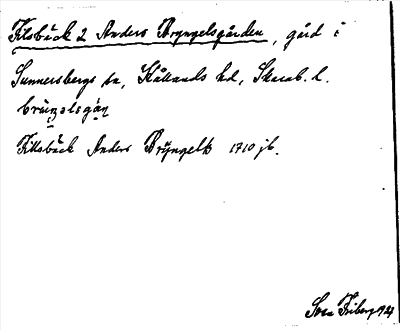 Filsbäck 2 Anders Bryngelsgården, gård i
Sunnersbergs sn, Kållands hd, Skarab. l.
brüŋəlsgạṇ
Fillsbäck Anders Brÿngelß 1710 jb.
Sven Friberg 1921